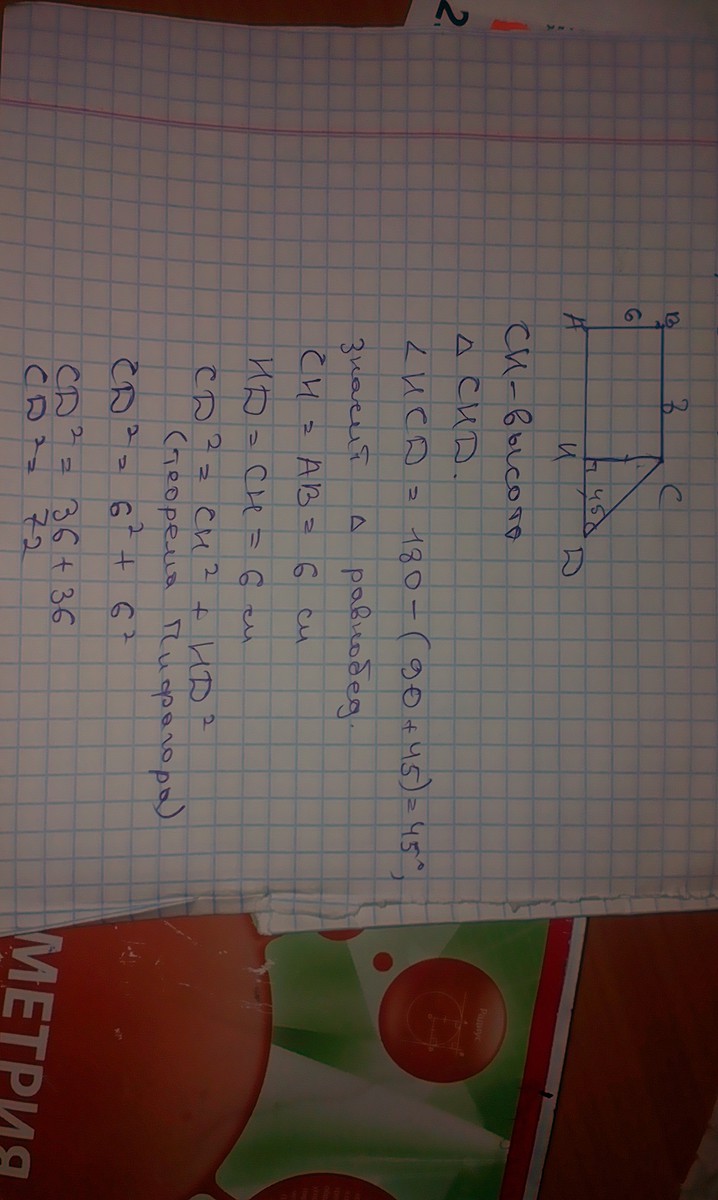 2
B 3 C
6
45°
A H D
CH - высота
△ CHD.
∠HCD = 180 - (90 + 45) = 45°,
Значит △ равнобед.
CH = AB = 6 см
HD = CH = 6 см
CD² = CH² + HD²
(теорема Пифагора)
CD² = 6² + 6²
CD² = 36 + 36
CD² = 72
МЕТРИЯ